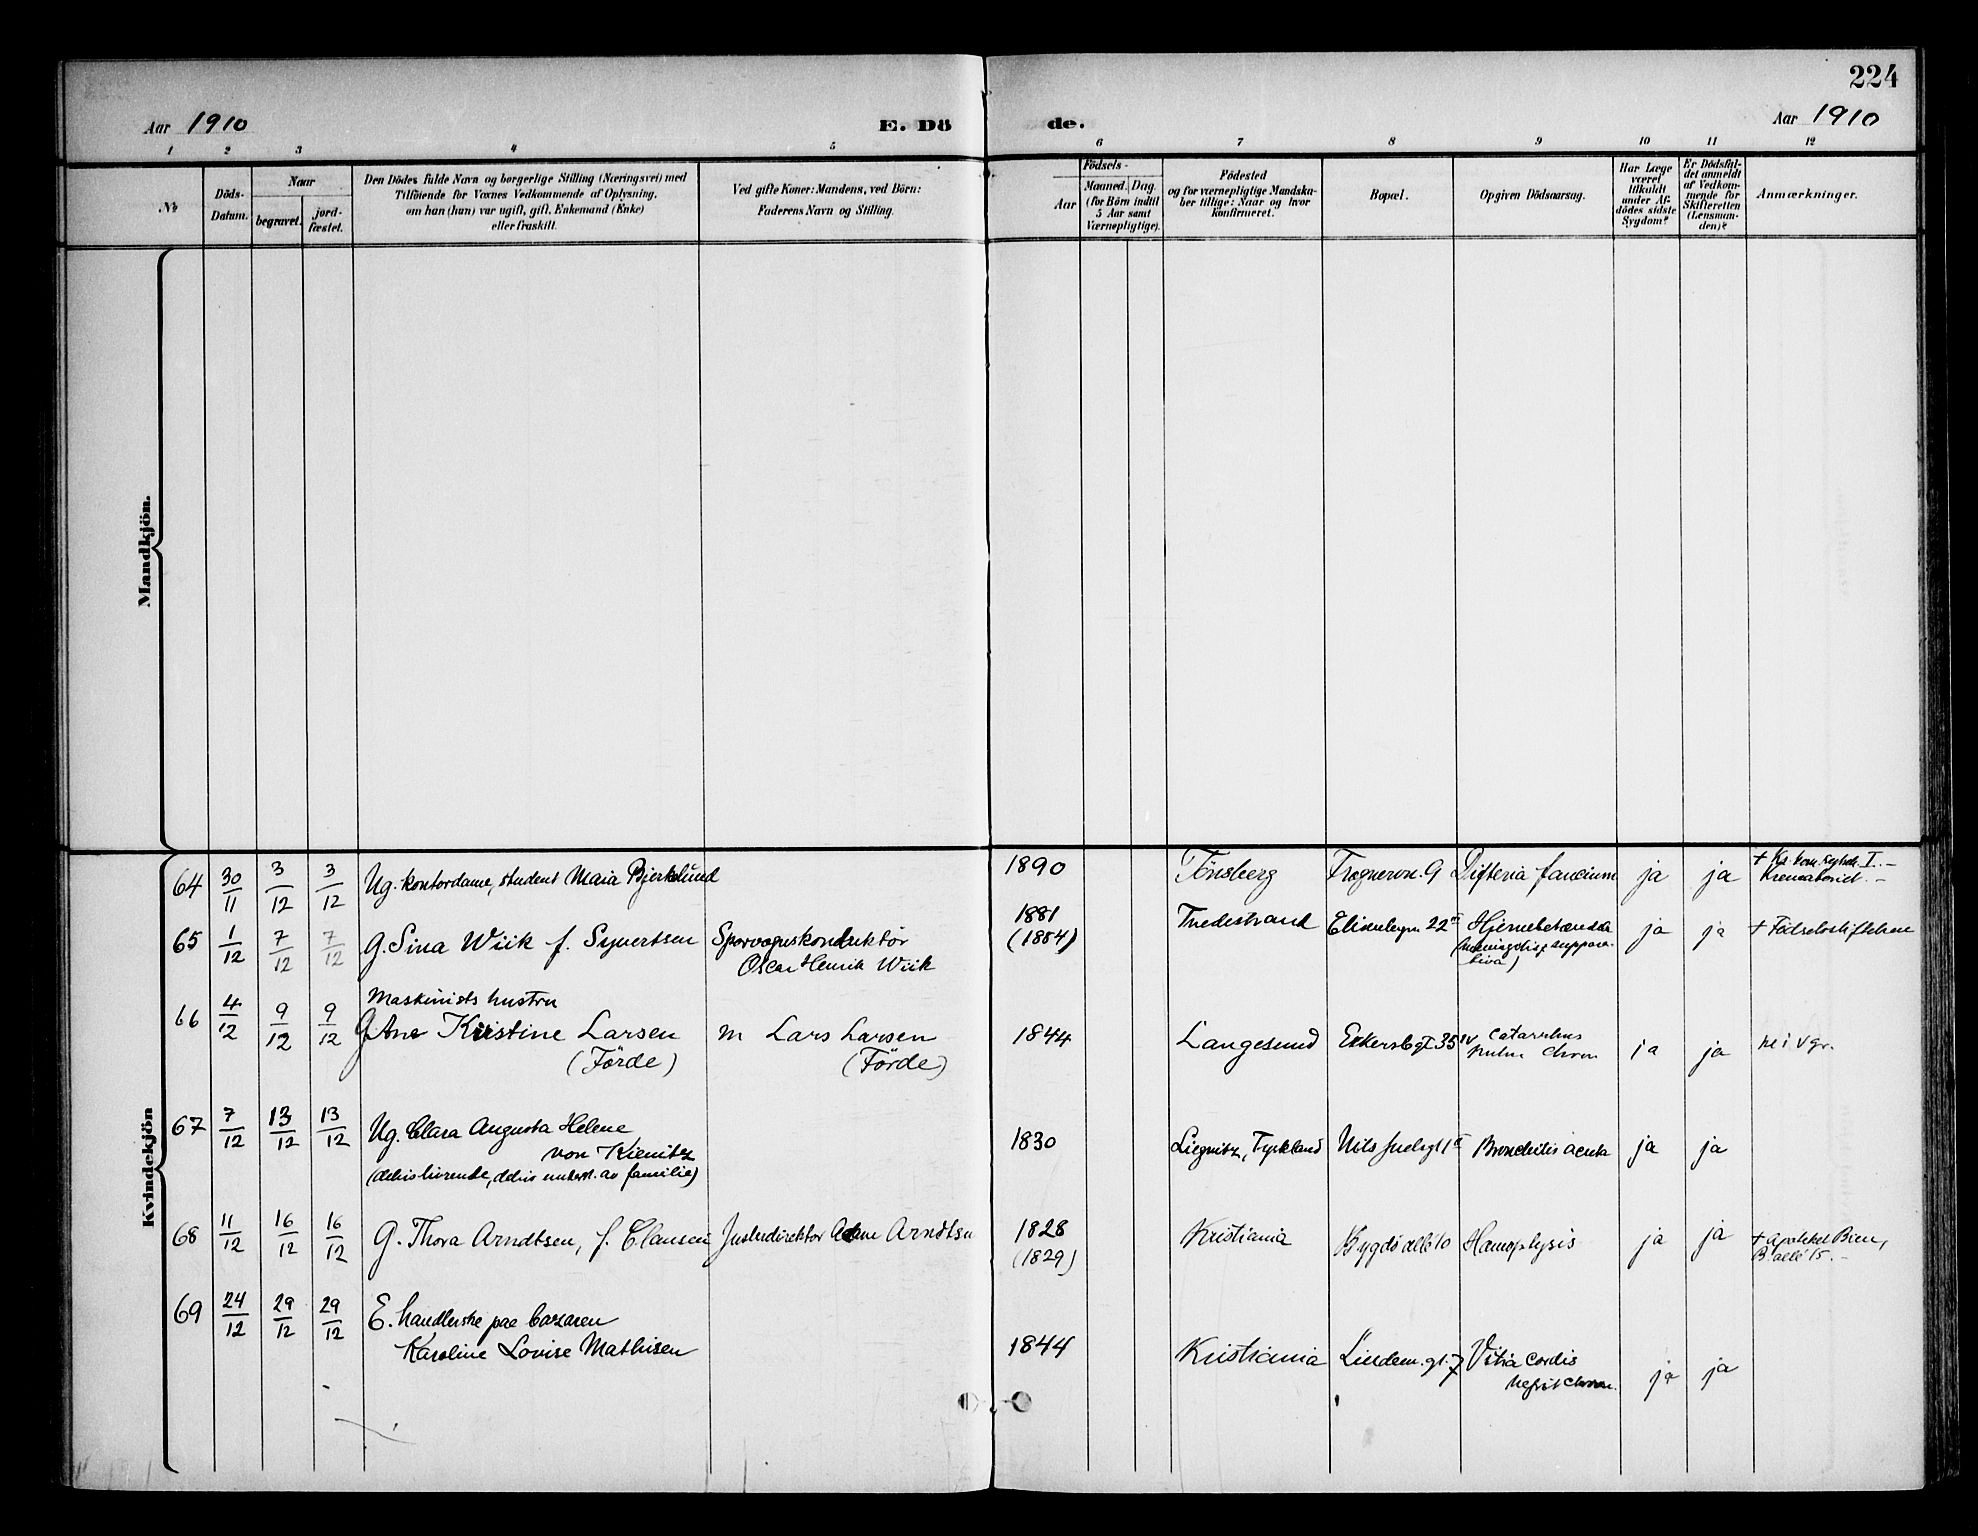 224
Aar 1910
E. Dö
de.
Aar 1910
1 2 3 4 5 6 7 8 9 10 11 12
No
Döds-
Datum.
Naar
begravet.
jord-
fæstet.
Den Dödes fulde Navn og borgerlige Stilling (Næringsvei) med
Tilföiende for Voxnes Vedkommende af Oplysning,
om han (hun) var ugift, gift, Enkemand (Enke)
eller fraskilt.
Ved gifte Koner: Mandens, ved Börn:
Faderens Navn og Stilling.
Födsels-
Aar
Maaned. Dag.
(for Börn indtil
5 Aar samt
Værnepligtige).
Födested
og for værnepligtige Mandska-
ber tillige: Naar og hvor
konfirmeret.
Bopæl.
Opgiven Dödsaarsag.
Har Læge
været
tilkaldt
under Af-
dödes sidste
Sygdom?
Er Dödsfal-
det anmeldt
af Vedkom-
mende for
Skifteretten
(Lensman-
den)?
Anmærkninger.
Mandkjön.
Kvindekjön
64 30/11 3/12 3/12 Ug. kontordame, student Maia Bjerklund 1890 Tönsberg Frognerv. 9 Difteria faucium ja ja
Krematoriet.
65 1/12 7/12 7/12 G. Sina Wiik f. Syvertsen Sporvognskonduktör
Oscar Henrik Wiik
1881
(1884)
Tvedestrand 22 Hjernebetændelse
ja ja + Födselsstiftelsen
66 4/12 9/12 9/12 Maskinists hustru
G Ane Kristine Larsen
(Förde)
m Lars Larsen
(Förde)
1844 Langesund Eckersbgt 35 IV Catarrhus
pulm chron ja ja
67 7/12 13/12 13/12 Ug. Clara Augusta Helene
von Kienitz
(delvis lærerinde, delvis underst. av familie)
1830 Liegnitz, Tyskland Bronchitis acuta ja ja
68 11/12 16/12 16/12 G. Thora Arndtsen, f. Clausen Justerdirektor Adam Arndtsen
1828
(1829)
Kristiania Bygdö allé 10 Hæmoptysis ja ja + apoteket Bien,
B. allé 15. -
69 24/12 29/12 29/12 E. handlerske paa bazaren
Karoline Lovise Mathisen
1844 Kristiania Lindem. gt. 7 Vitia cordis
nefrit chron. ja ja